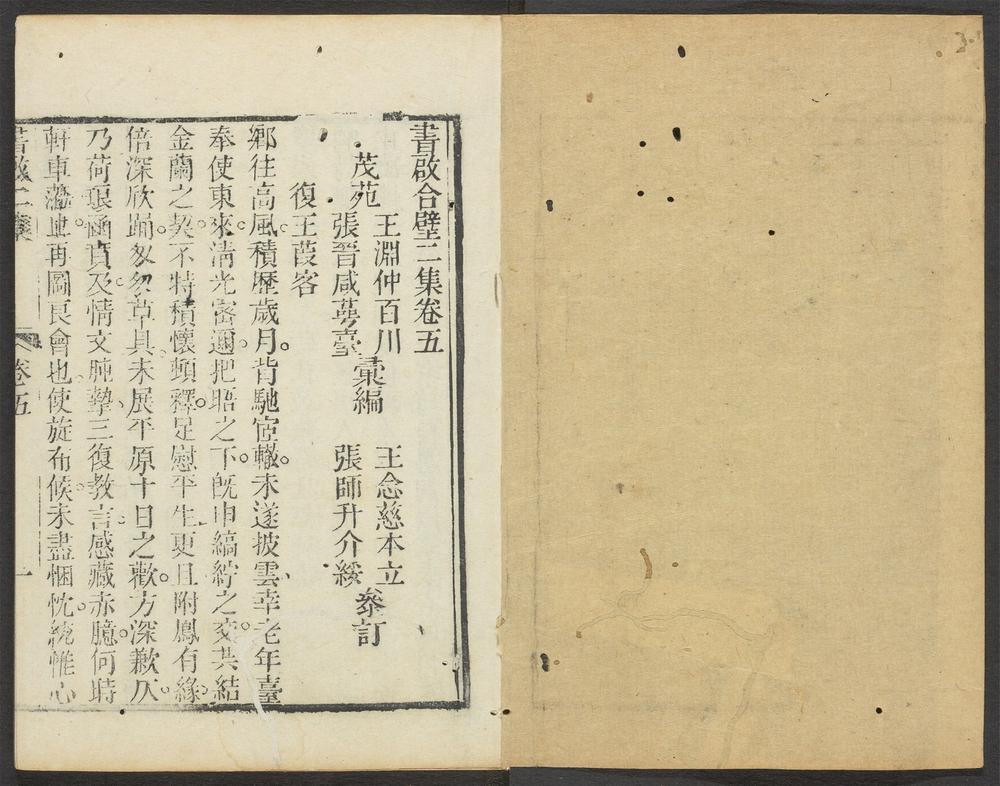 書啟合璧二集卷五
茂苑
王淵仲百川
張晉咸蕚臺
彙編
王念慈本立
張師升介綏
叅訂
復王葭客
鄉往高風積歷歲月背馳宦轍未遂披雲幸老年臺
奉使東來清光密邇把晤之下旣申縞紵之交共結
金蘭之契不特積懷頓釋足慰平生更且附鳳有緣
倍深欣踴匆匆草具未展平原十日之歡方深歉仄
乃荷琅函賁及情文肫摯三復教言感藏赤臆何時
軒車再圖良會也使旋布候未盡悃忱統惟心
書啟二集
卷五
一